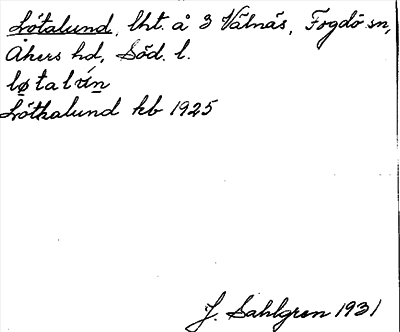 Lötalund, lht. å 3 Valnäs, Fogdö sn,
Åkers hd, Söd. l.
løtalún
Löthalund kb 1925
J. Sahlgren 1931